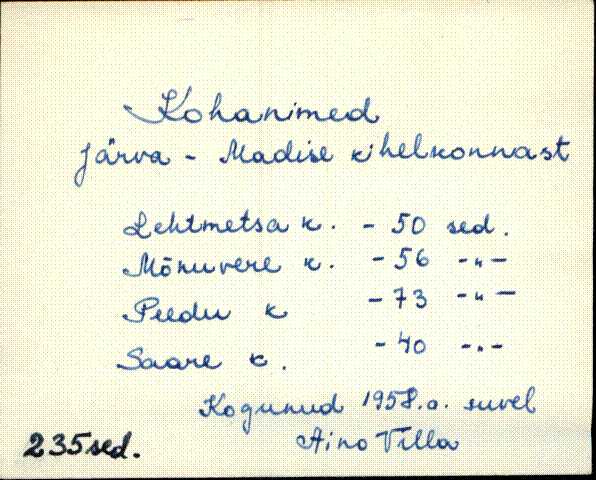 Kohanimed
Järva - Madise kihelkonnast
Lehtmetsa k. - 50 sed.
Mõnuvere k. - 56 -"-
Peedu k - 73 -"-
Saare k. - 40 -"-
Kogunud 1958.a. suvel
Aino Villa
235 sed.